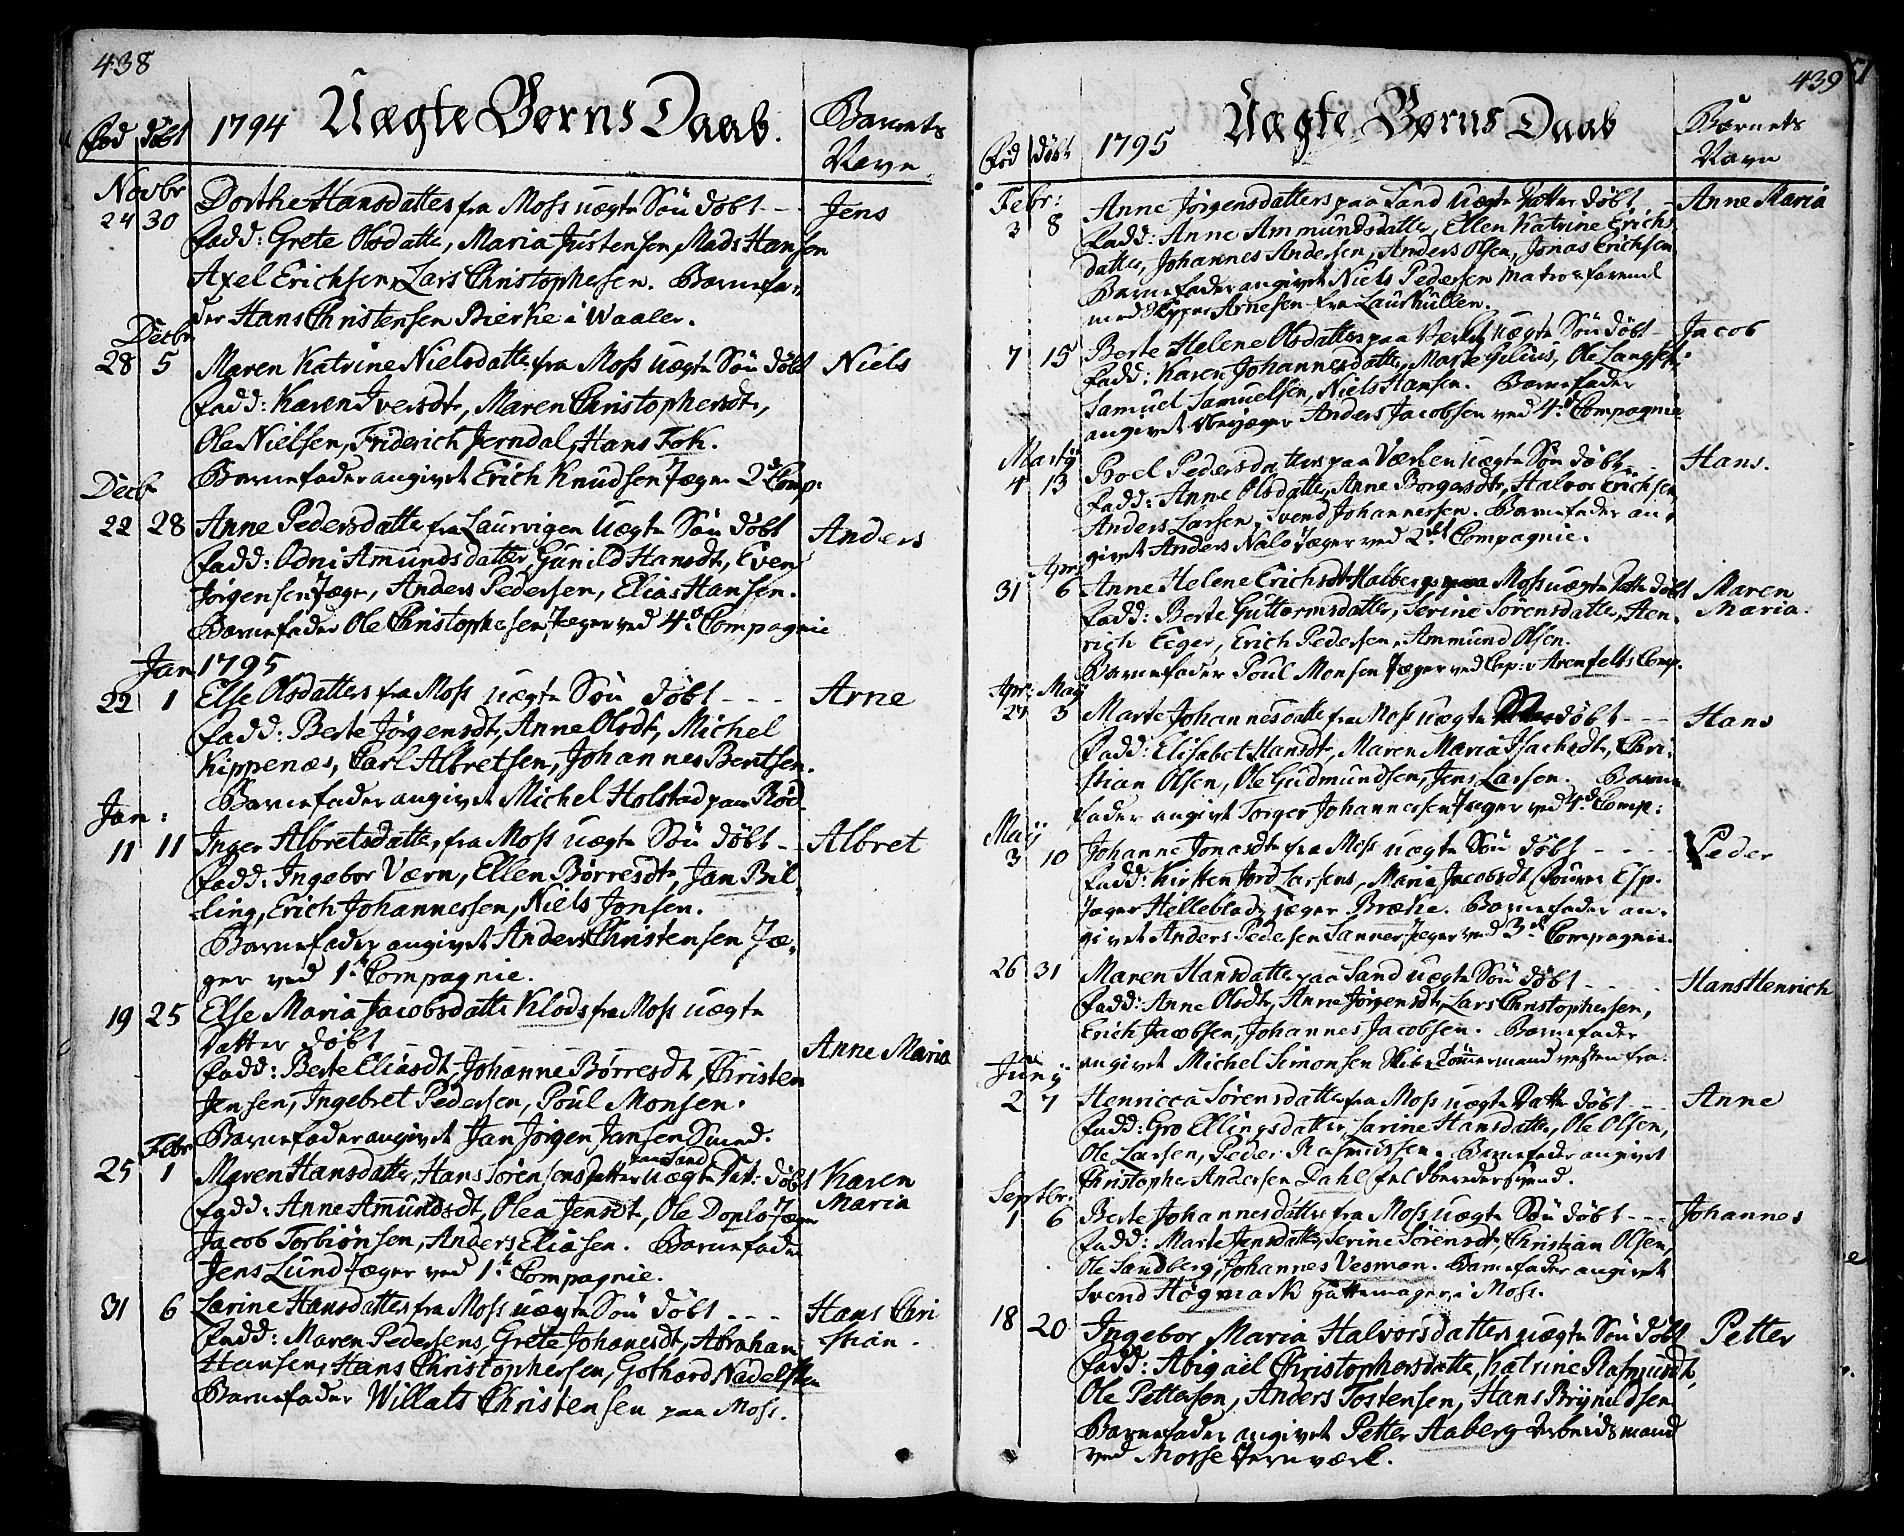 438
Uægte Børns Daab.
Barnets
Navn
Fød døbt 1794
Novbr
24 30 Dorthe Hansdatters fra Moss uægte Søn døbt - Jens
Fadd: Grete Olsdatter, Maria Justensen, Mads Hansen
Axel Erichsen, Lars Christophersen. Barnefa-
der Hans Christensen Bierke i Waaler.
Decbr
28 5 Maren Katrine Nielsdatter fra Moss uægte Søn døbt Niels
Fadd: Karen Iversdtr, Maren Christophersdtr,
Ole Nielsen, Friderich Jerndal, Hans Fok.
Barnefader angivet Erich Knudsen Jæger 2d Comp:
Decb
22 28 Anne Pedersdatter fra Laurvigen uægte Søn døbt Anders
Fadd: Odni Amunds datter, Gunild Hansdtr, Even
Jørgensen Jæger, Anders Pedersen, Elias Hansen.
Barnefader Ole Christophersen, Jæger ved 4d Compagnie
Jan 1795
22 1 Else Olsdatters fra Moss uægte Søn døbt - - - Arne
Fadd: Berte Jørgensdt, Anne Olsdt, Michel
Kippenæs, Carl Albretsen, Johannes Bentsen.
Barnefader angivet Michel Holstad paa Rød
Jan:
11 11 Inger Albretsdatter, fra Moss uægte Søn døbt - - Albret
Fadd: Ingebor Værn, Ellen Børresdtr, Jan Bil-
ling, Erich Johannessen, Niels Jonsen.
Barnefader angivet Anders Christensen Jæ-
ger ved 1. Compagnie.
19 25 Else Maria Jacobsdatter Klods fra Moss uægte
Datter døbt - - - Anne Maria
Fadd: Berte Eliasdt, Johanne Børresdt, Christen
Jensen, Ingebret Pedersen, Poul Monsen.
Barnefader angivet Jan Jørgen Jansen Smed.
Febr
paa Sand
25 1 Maren Hansdatter, Hans Sørensens datter uægte Dat: døbt Karen
Maria
Fadd: Anne Amundsdt, Olea Jensdt, Ole Doplo Jæger
Jacob Torbiønsen, Anders Eliasen. Barnefader
Jens Lund Jæger ved 1. Compagnie.
31 6 Larine Hansdatters fra Moss uægte Søn døbt - - - Hans Chri
stian
Fadd: Maren Pedersens, Grete Johanesdt, Abraham
Hansen, Hans Christophersen, Gothard Nadelsten
Barnefader Willats Christensen paa Moss.
439
Uægte Børns Daab
Barnets
Navn
Fød døbt 1795
Febr:
3 8 Anne Jørgensdatters paa Sand uægte Datter døbt - Anne Maria
Fadd: Anne Ammundsdatter, Ellen Katrine Erichs
datter, Johannes Andersen, Anders Olsen, Jonas Erichsen
Barnefader angivet Niels Pedersen Matros farend
med Skipper Arnesen fra Laurkullen.
7 15 Berte Helene Olsdatters paa Værlen uægte Søn døbt - Jacob
Fadd: Karen Johannesdatter, Marte Gilius, Ole Langset.
Samuel Samuelsen, Niels Hansen. Barnefader
angivet Anders Jacobsen ved 4d Compagnie
Martij
4 13 Boel Pedersdatters paa Værlen uægte Søn døbt - - Hans.
Fadd: Anne Olsdatter, Anne Borgersdtr, Halvor Erichsen
Anders Larsen, Svend Johannessen. Barnefader an-
givet Anders Nalo Jæger ved 2d Compagnie.
Apr:
31 6 Anne Helene Erichsdt Halbergs paa Moss uægte Datter døbt Maren
Maria.
Fadd: Berte Guttormsdatter, Serine Sørensdatter, Hen-
rich Eeger, Erich Pedersen, Ammund Olsen.
Barnefader Poul Monsen Jæger ved Cap: v Arenfelts Comp.
Apr: Maij
27 3 Marte Johannesdatter fra Moss uægte Søn døbt - - - Hans
Fadd: Elisabet Hansdt, Maren Maria Isachsdtr, Chri-
stian Olsen, Ole Gudmundsen, Jens Larsen. Barne
fader angivet Torger Johannessen Jæger ved 4d Comp:
Maij
3 10 Johanne Jonasdt fra Moss uægte Søn døbt - - - - Peder
Fadd: Kirsten Jord Larsens, Maria Jacobsdt, Esp.
Jæger Helleblad, jæger Bræke. Barnefader an-
givet Anders Pedersen Sanner Jæger ved 3d Compagnie.
26 31 Maren Hansdatter paa Sand uægte Søn døbt - - - - Hans Henrich
Fadd: Anne Olsdt, Anne Jørgensdt, Lars Christophersen,
Erich Jacobsen, Johannes Jacobsen. Barnefader
angivet Michel Simonsen Skibs Tømmermand vesten fra:
Junij
2 7 Henricca Sørensdatter fra Moss uægte Datter døbt - - Anne
Fadd: Gro Ellingsdatter, Larine Hansdatter, Ole Olsen,
Ole Larsen, Peder Rasmussen. Barnefader angivet
Christopher Andersen Dahl Felberedersvend.
Septbr:
1 6 Berte Johannesdatters fra Moss uægte Søn døbt - - - Johannes
Fadd: Marte Jensdatter, Serine Sørensdt, Christian Olsen,
Ole Sandberg, Johannes Vesman. Barnefader angivet
Svend Høgmark Hattemager i Moss.
18 20 Ingebor Maria Halvorsdatters uægte Søn døbt Petter
Fadd: Abigael Christophersdatter, Katrine Rasmusdt,
Ole Pettersen, Anders Tostensen, Hans Brynildsen
Barnefader angivet Petter Aaberg Arbeidsmand
ved Mosse Jernværk.